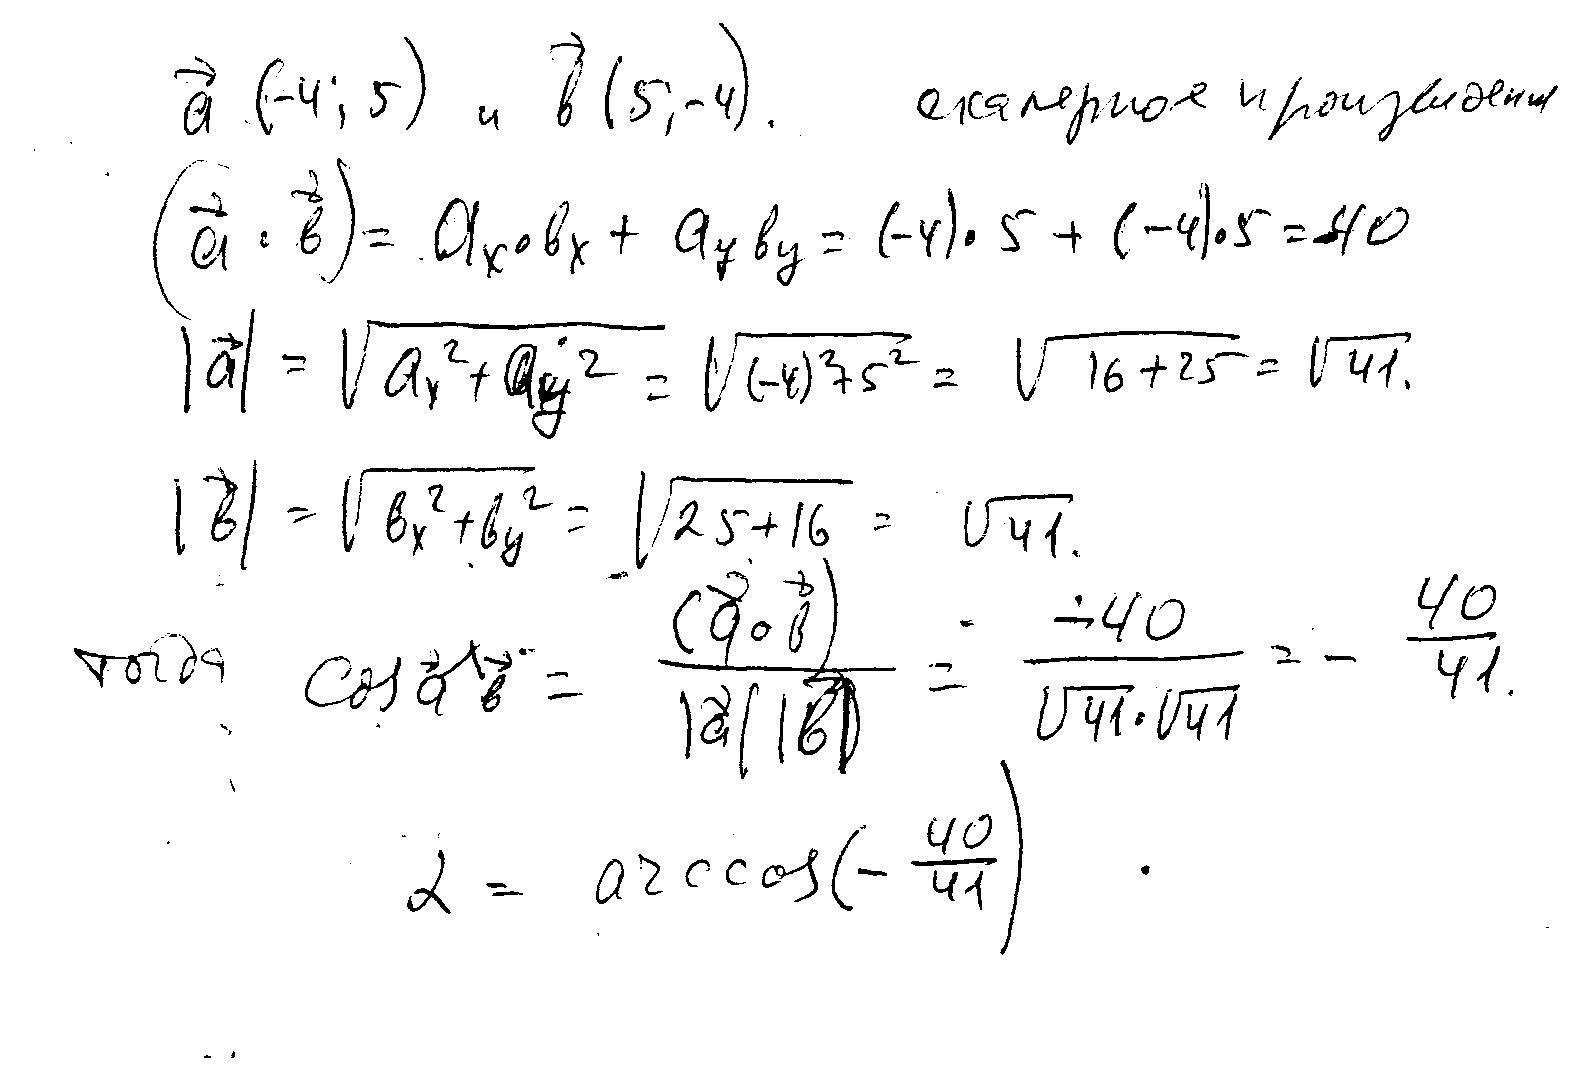 a⃗ (-4; 5) и b⃗ (5; -4). скалярное произведение
(a⃗ · b⃗) = aₓ · bₓ + a_y b_y = (-4) · 5 + (-4) · 5 = -40
|a⃗| = √(aₓ² + a_y²) = √((-4)² + 5²) = √(16+25) = √41.
|b⃗| = √(bₓ² + b_y²) = √(25+16) = √41.
тогда cos a⃗^b⃗ = (a⃗ · b⃗) / |a⃗| |b⃗| = -40 / √41 · √41 = - 40/41.
α = arccos(- 40/41)